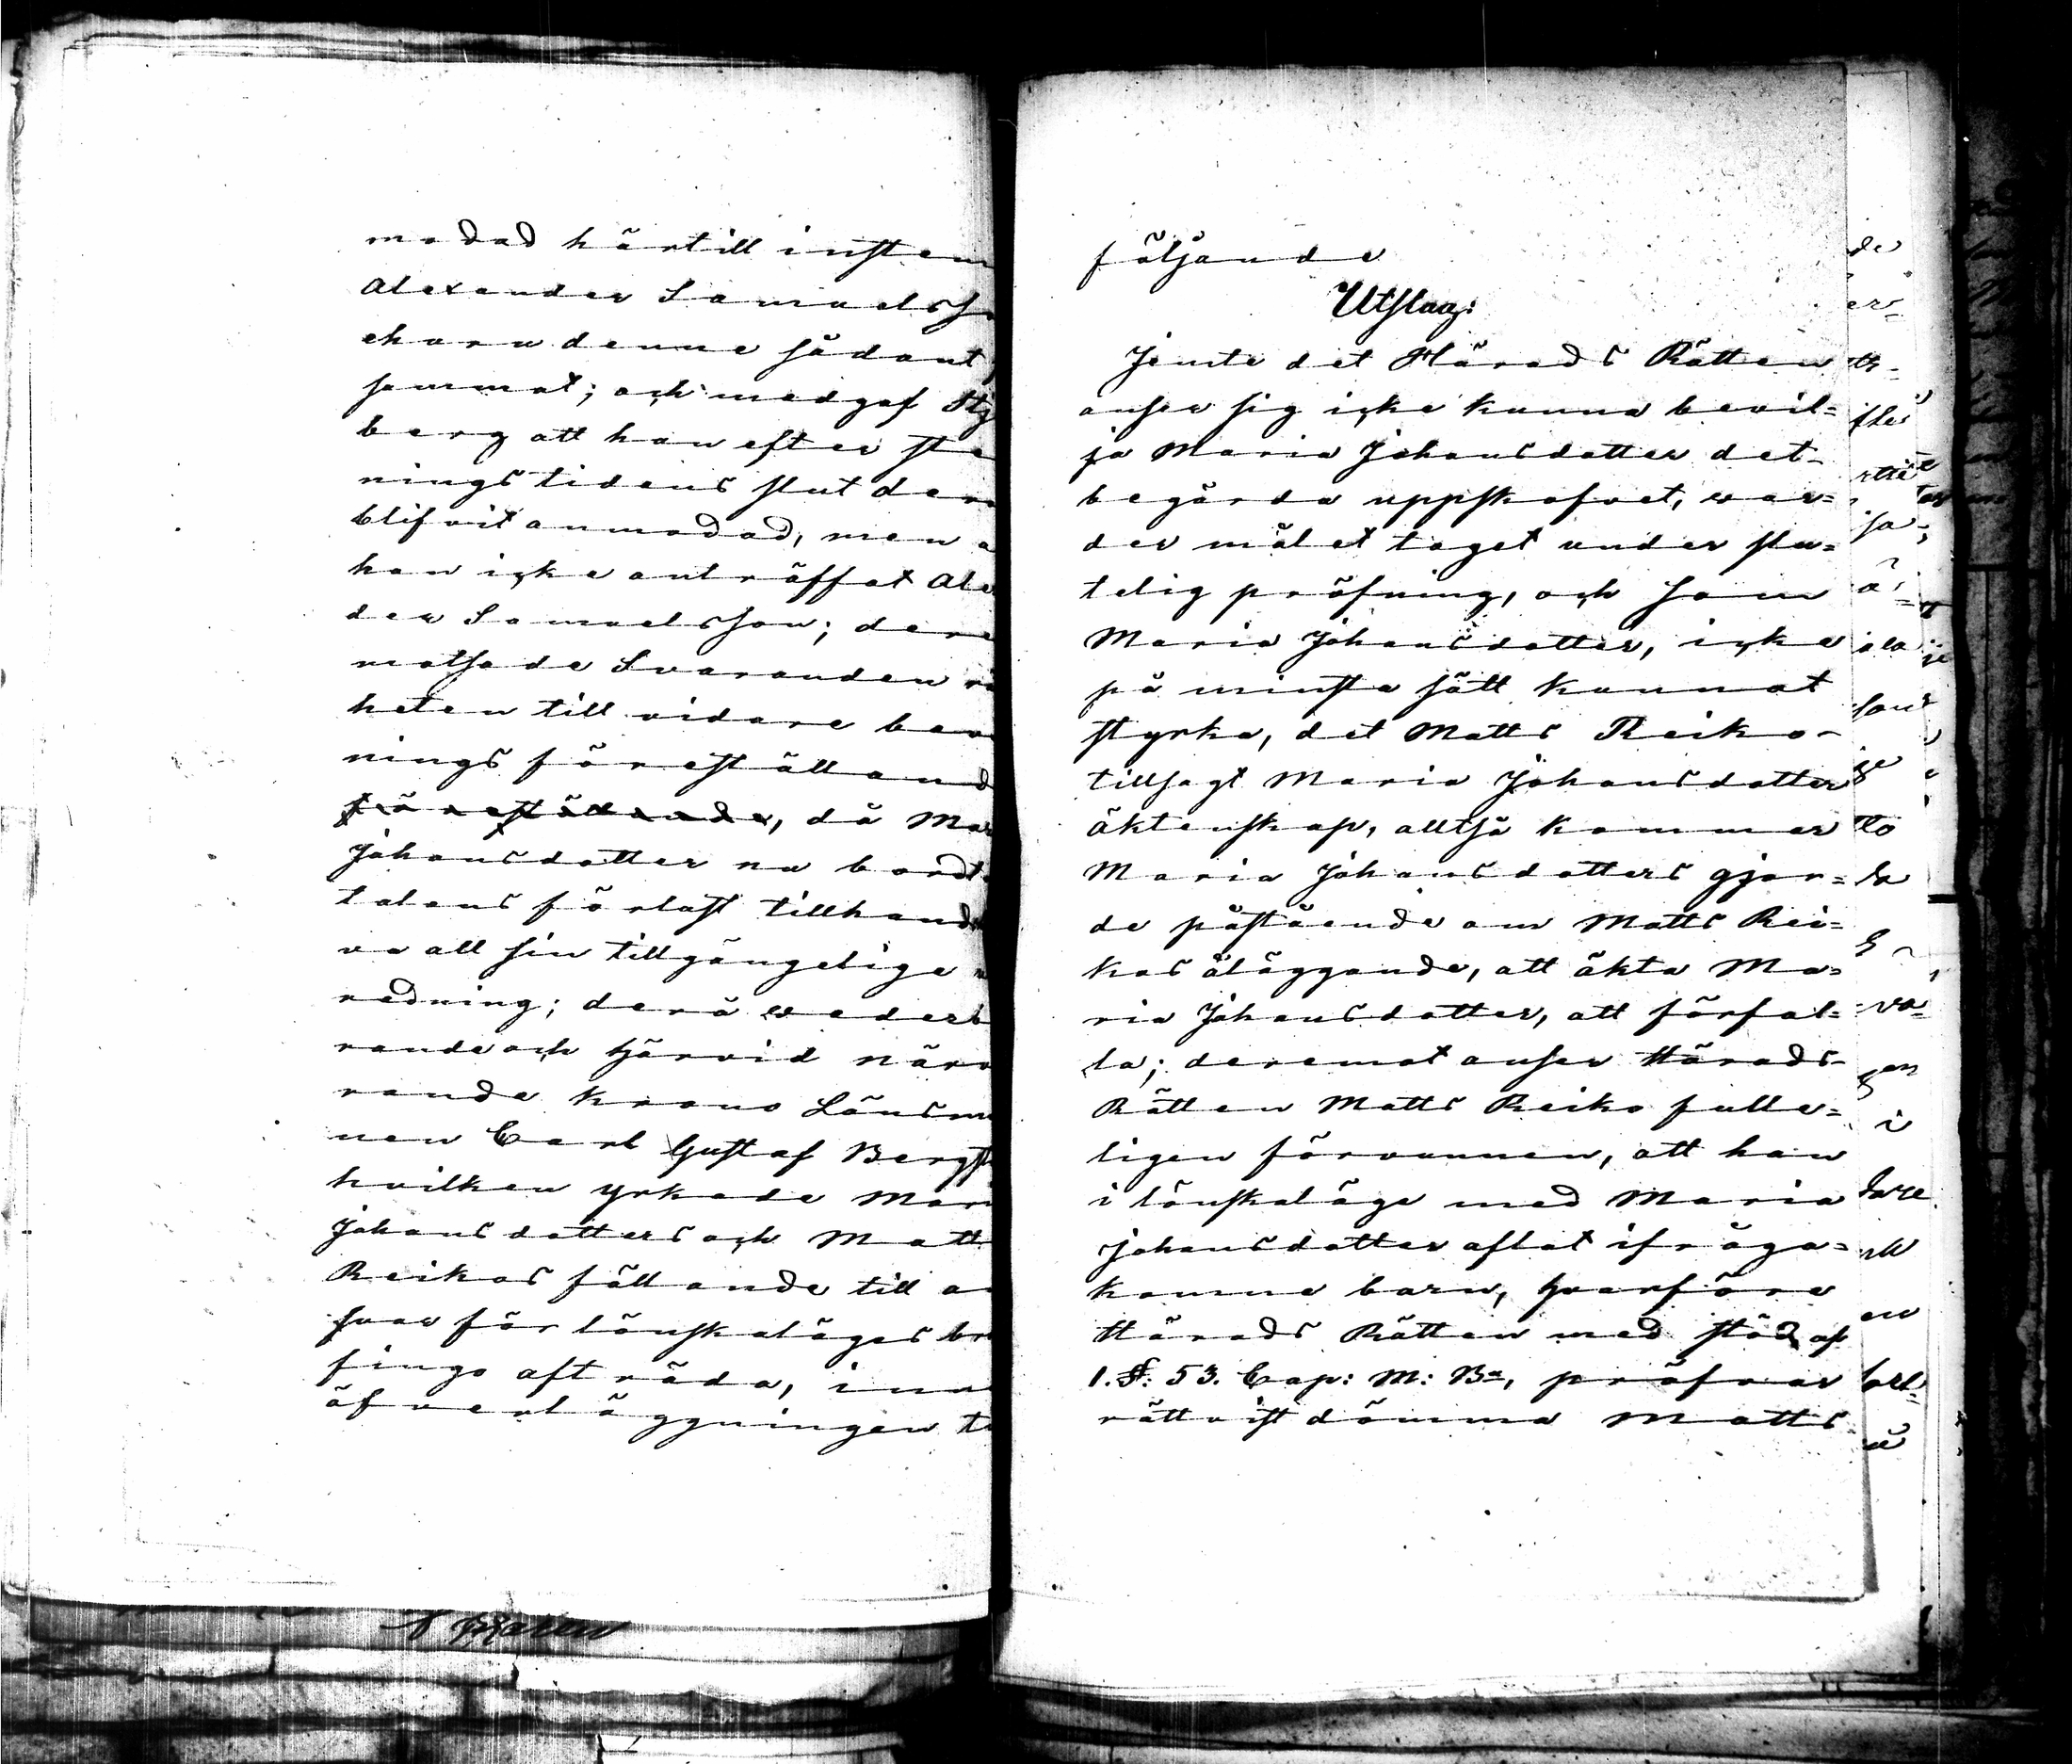 modad härtill instem
Alexander Samuelsso
ehuru denne sådant
summat; och medgaf Stj
berg att han efter stä
ningstidens slut der
blifvit anmodad, men a
han icke anträffat Ale
der Samuelsson; dere
motsade Svaranden rä
heten till vidare bevi
nings föreställand
föreställande, då Mar
Johansdotter nu bordt
talens förlust tillhand
va all sin tillgängelige
redning; derå wederb
rande och härvid närv
rande Krono Länsma
nen Carl Gustaf Bergst
hvilken yrkade Mari
Johansdotters och Matt
Reikos fällande till an
svar för lönskalägesbro
fingo afträda, inn
öfverläggningen to
följande
Utslag:
Jemte det Härads Rätten
anser sig icke kunna bevil=
ja Maria Johansdotter det
begärda uppskofvet, war=
der målet taget under slu=
telig pröfning, och som
Maria Johansdotter, icke
på minsta sätt kunnat
styrka, det Matts Reiko
tillsagt Maria Johansdotter
äktenskap, alltså kommer
Maria Johansdotters gjor=
de påstående om Matts Rei=
kos åläggande, att äkta Ma=
ria Johansdotter, att förfal=
la; deremot anser Härads
Rätten Matts Reiko fulle=
ligen förvunnen, att han
i lönskaläge med Maria
Johansdotter aflat ifråga=
komne barn, hvarföre
Härads Rätten med stöd af
1. §. 53. Cap: M: B=, pröfvar
rättvist dömma Matts